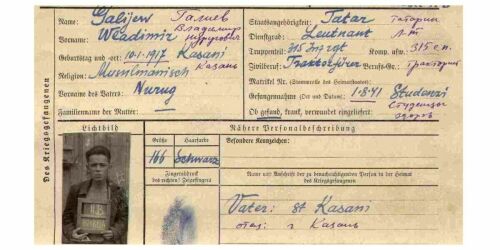 Name: Galijew Галиев
Vorname: Wladimir Владимир
Geburtstag und -ort: 10.1.1917 Kasani Казань
Religion: Muselmanisch
Vorname des Vaters: Nurug
Familienname der Mutter:
Staatsangehörigkeit: Tatar татарин
Dienstgrad: Leutnant л-т
Truppenteil: 315 Inf rgt Komp. usw. 315 с.п.
Zivilberuf: Traktorführer Berufs-Gr.: тракторист
Matrikel Nr. (Stammrolle des Heimatstaates):
Gefangennahme (Ort und Datum): 1.8.41 Studenzi
Студенцы
Ob gesund, krank, verwundet eingeliefert: здоров
Des Kriegsgefangenen
Lichtbild
Größe
Haarfarbe
166
Schwarz
Fingerabdruck
des rechten! Zeigefingers
Nähere Personalbeschreibung
Besondere Kennzeichen:
Name und Anschrift der zu benachrichtigenden Person in der Heimat
des Kriegsgefangenen
Vater: st Kasani
отец: г Казань